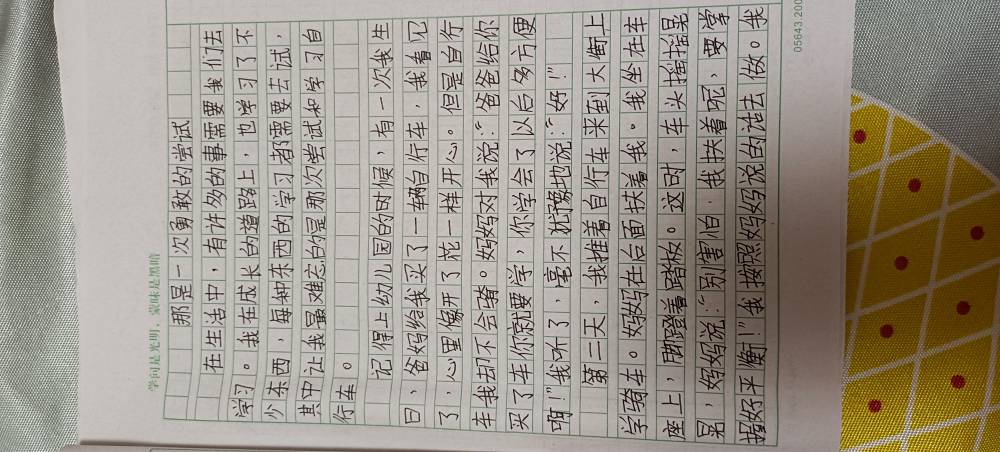 学问是光明，蒙昧是黑暗
那是一次勇敢的尝试
在生活中，有许多的事需要我们去
学习。我在成长的道路上，也学习了不
少东西，每种东西的学习都需要去试，
其中让我最难忘的是那次尝试和学习自
行车。
记得上幼儿园的时候，有一次我生
日，爸妈给我买了一辆自行车，我看见
了，心里像开了花一样开心。但是自行
车我却不会骑。妈妈对我说：“爸爸给你
买了车你就要学，你学会了以后多方便
啊！”我听了，毫不犹豫地说：“好！”
第二天，我推着自行车来到大街上
学骑车。妈妈在后面扶着我。我坐在车
座上，脚蹬着踏板。这时，车头摇摇晃
晃，妈妈说：“别害怕．我扶着呢，要掌
握好平衡！”我按照妈妈说的话去做。我
05643.200